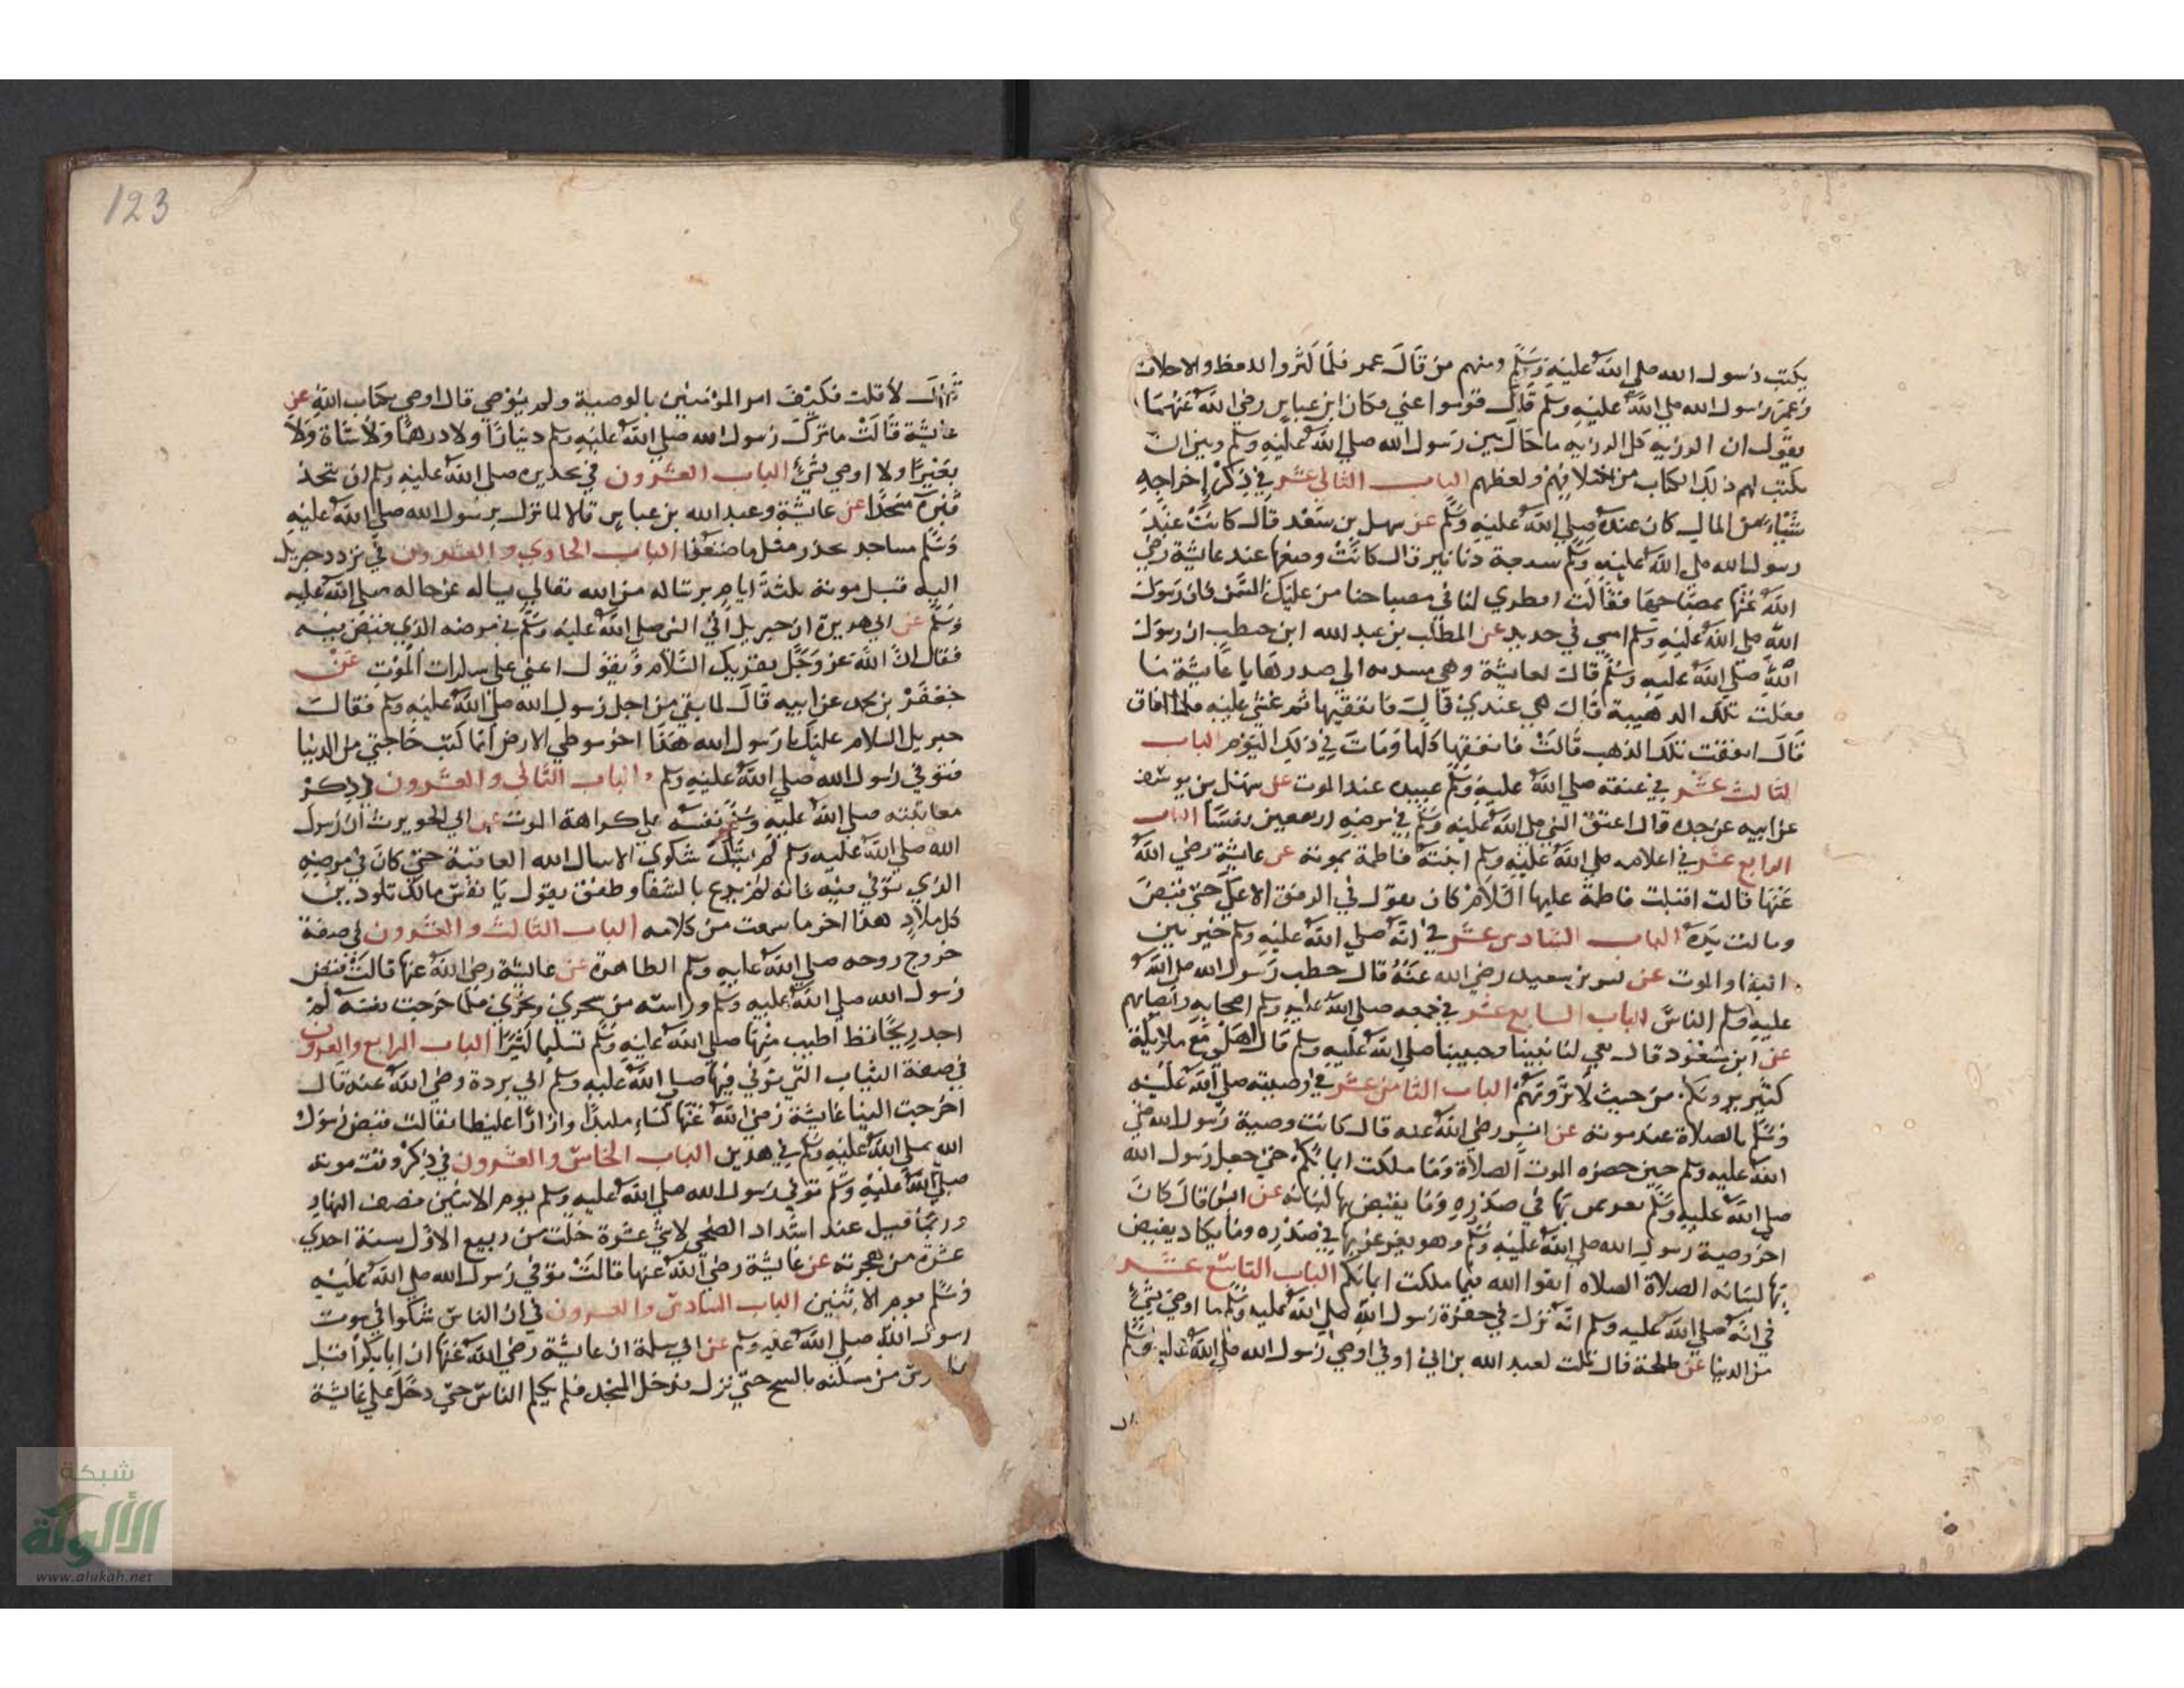 يكتب رسول الله صلى الله عليه وسلم ومنهم من قال عمر فلما كثروا اللغط والاختلاف
وغم رسول الله صلى الله عليه وسلم قال قوموا عني فكان ابن عباس رضي الله عنهما
يقول ان الرزية كل الرزية ما حال بين رسول الله صلى الله عليه وسلم وبين ان
يكتب لهم ذلك الكتاب من اختلافهم ولغطهم الباب الثاني عشر في ذكر إخراجه
شيأ من المال كان عنده صلى الله عليه وسلم عن سهل بن سعد قال كانت عند
رسول الله صلى الله عليه وسلم سبعة دنانير قال كانت وضعها عند عايشة رضي
الله عنها فقالت اقطري لنا في مصباحنا من عكيك السمن فان رسول
الله صلى الله عليه وسلم امسي في حديد عن المطلب بن عبد الله ابن حنطب ان رسول
الله صلى الله عليه وسلم قال لعايشة وهي مسندته الي صدرها يا عايشة ما
فعلت تلك الذهيبة قالت هي عندي قال فانفقيها ثم غشي عليه فلما افاق
قال انفقت تلك الذهب قالت فانفقها كلها ومات في ذلك اليوم الباب
الثالث عشر في عتقه صلى الله عليه وسلم عبيده عند الموت عن سهل بن يوسف
عن ابيه عن جده قال اعتق النبي صلى الله عليه وسلم في مرضه اربعين نفسا الباب
الرابع عشر في اعلامه صلى الله عليه وسلم ابنته فاطمة بموته عن عايشة رضي الله
عنها قالت اقبلت فاطمة عليها السلام كان يقول في الرفيق الاعلي حتي قبض
ومالت يده الباب السادس عشر في انه صلى الله عليه وسلم خير بين
البقا والموت عن بن سعيد رضي الله عنه قال خطب رسول الله صلى الله
عليه وسلم الناس الباب السابع عشر في جمعه صلى الله عليه وسلم اصحابه
عن ابن مسعود قال نعي لنا نبينا وحبيبنا صلى الله عليه وسلم قال اهلي مع ملايكة
كثير يرونكم من حيث لا ترونهم الباب الثامن عشر في وصيته صلى الله عليه
وسلم بالصلاة عند موته عن انس رضي الله عنه قال كانت وصية رسول الله صلى
الله عليه وسلم حين حضره الموت الصلاة وما ملكت ايمانكم حتي جعل رسول الله
صلى الله عليه وسلم بها في صدره وما يفيض بها لسانه عن انس قال كان
اخر وصية رسول الله صلى الله عليه وسلم وهو يغرغر بها في صدره وما يكاد يفيض
بها لسانه الصلاة الصلاه اتقوا الله فيما ملكت ايمانكم الباب التاسع عشر
في انه صلى الله عليه وسلم انه نزل في حفرة رسول الله صلى الله عليه وسلم ما اوصي بشيء
من الدنيا عن طلحة قال قلت لعبد الله بن ابي اوفي اوصي رسول الله صلى الله عليه وسلم
123
قال لا قلت فكيف امر المؤمنين بالوصية ولم يوصي قال اوصي بكتاب الله عن
عايشة قالت ما ترك رسول الله صلى الله عليه وسلم دينارا ولا درهما ولا شاة ولا
بعيرا ولا اوصي بشيء الباب العشرون في تحذيره صلى الله عليه وسلم ان تتخذ
قبره مسجدا عن عايشة وعبد الله بن عباس قالا لما نزل برسول الله صلى الله عليه
وسلم مساجد يحذر مثل ما صنعوا الباب الحادي والعشرون في تردد جبريل
اليه قبل موته ثلثة ايام برسالة من الله تعالي يساله عن حاله صلى الله عليه
وسلم عن ابي هريرة ان جبريل اتي النبي صلى الله عليه وسلم في مرضه الذي قبض فيه
فقال ان الله عز وجل يقريك السلام ويقول اعني علي سكرات الموت عن
جعفر بن محمد عن ابيه قال لما بقي من اجل رسول الله صلى الله عليه وسلم فقال
جبريل السلام عليك يا رسول الله هذا اخر موطي الارض انما كنت حاجتي من الدنيا
فتوفي رسول الله صلى الله عليه وسلم الباب الثاني والعشرون في ذكر
معاتبته صلى الله عليه وسلم نفسه علي كراهة الموت عن ابي الحويرث ان رسول
الله صلى الله عليه وسلم لم يشك شكوي الا سال الله العافية حتي كان في مرضه
الذي توفي فيه فانه لم يدع بالشفا وطفق يقول يا نفس مالك تلوذين
كل ملاذ هذا اخر ما سمعت من كلامه الباب الثالث والعشرون في صفة
خروج روحه صلى الله عليه وسلم الطاهرة عن عايشة رضي الله عنها قالت قبض
رسول الله صلى الله عليه وسلم وراسه من سحري ونحري فلما خرجت نفسه لم
اجد ريحا قط اطيب منها صلى الله عليه وسلم تسليما كثيرا الباب الرابع والعشرون
في صفة الثياب التي توفي فيها صلى الله عليه وسلم ابي بردة رضي الله عنه قال
اخرجت الينا عايشة رضي الله عنها كساء ملبدا وازارا غليظا فقالت قبض رسول
الله صلى الله عليه وسلم في هذين الباب الخامس والعشرون في ذكر وقت موته
صلى الله عليه وسلم توفي رسول الله صلى الله عليه وسلم يوم الاثنين نصف النهار
وربما قيل عند اشتداد الضحي لاثني عشرة خلت من ربيع الاول سنة احدي
عشرة من هجرته عن عايشة رضي الله عنها قالت توفي رسول الله صلى الله عليه
وسلم يوم الاثنين الباب السادس والعشرون في ان الناس شكوا في موت
رسول الله صلى الله عليه وسلم عن ابي سلمة ان عايشة رضي الله عنها ان ابا بكر اقبل
من مسكنه بالسنح حتي نزل فدخل المسجد فلم يكلم الناس حتي دخل علي عايشة
شبكة
الألوكة
www.alukah.net